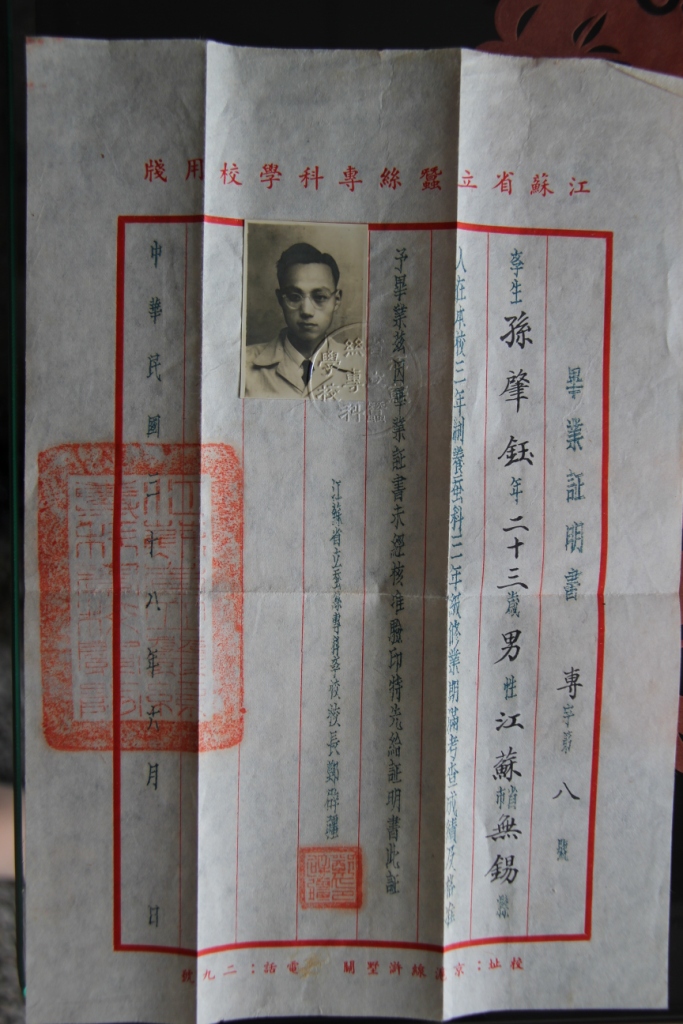 江蘇省立蠶絲專科學校用牋
畢業証明書 專字第八號
李生孫肇鈺年二十三歲男性江蘇省市無錫縣
人在本校三年制養蚕科三年級修業期滿考查成績及格准
予畢業茲因畢業証書未經核准驗印特先給証明書此証
江蘇省立蠶絲專科學校校長鄭辟疆
中華民國三十八年六月 日
校址：京滬線滸墅關 電話：二九號